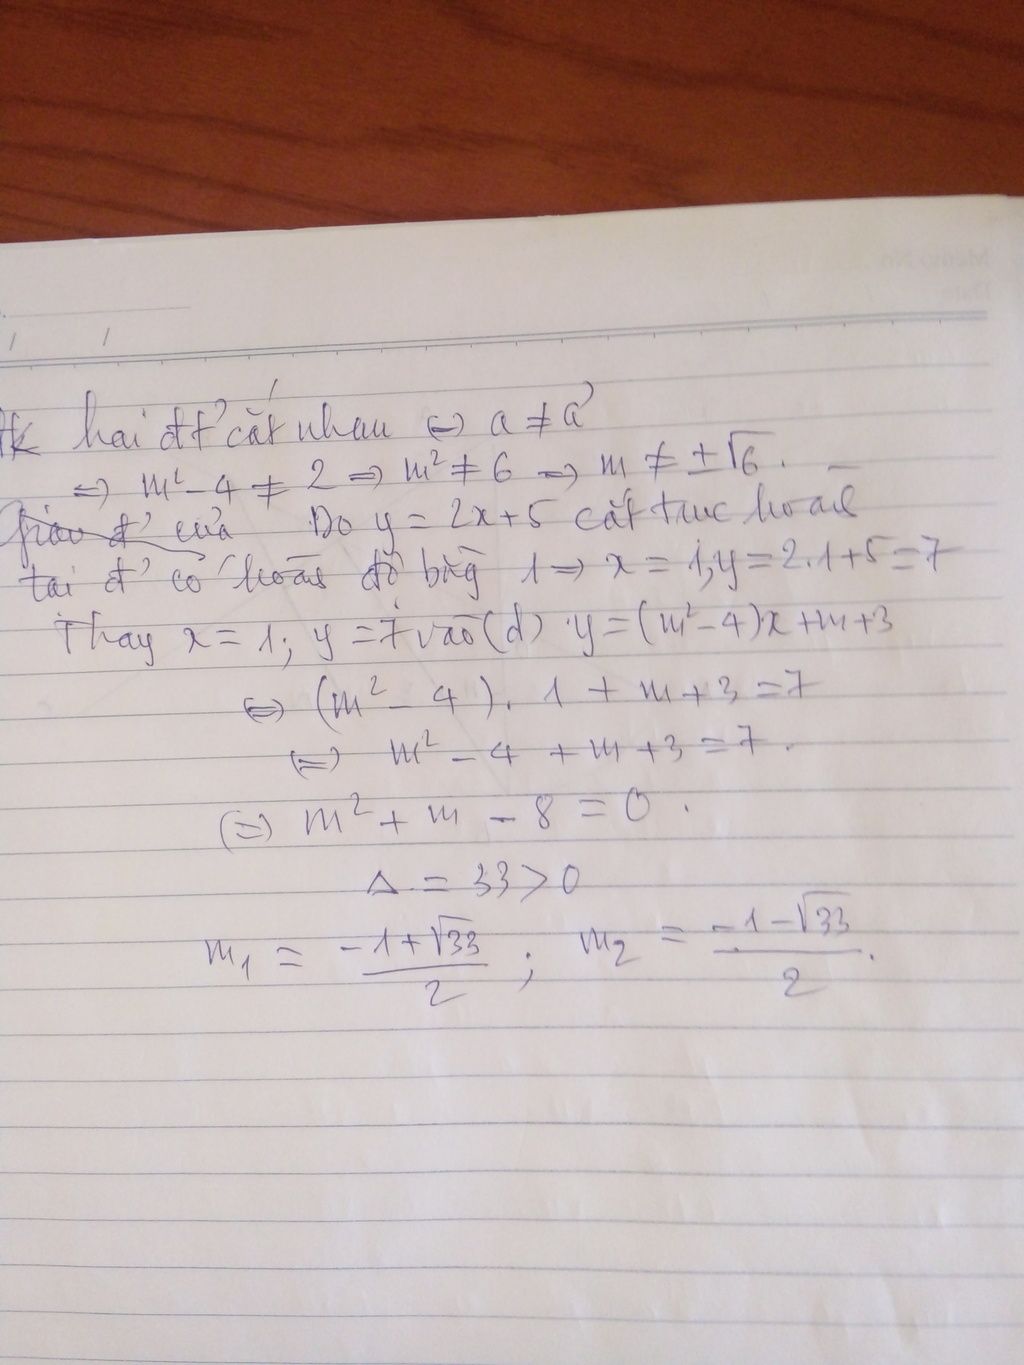 Đk hai đt cắt nhau <=> a ≠ a'
<=> m² - 4 ≠ 2 => m² ≠ 6 => m ≠ ±√6.
Giao đ' của Do y = 2x+5 cắt trục hoành
tại đ' có hoành độ bằng 1 => x = 1; y = 2.1+5 = 7
Thay x = 1; y = 7 vào (d) y = (m²-4)x + m + 3
<=> (m² - 4). 1 + m + 3 = 7
<=> m² - 4 + m + 3 = 7.
<=> m² + m - 8 = 0.
Δ = 33 > 0
m₁ = (-1+√33)/2 ; m₂ = (-1-√33)/2.